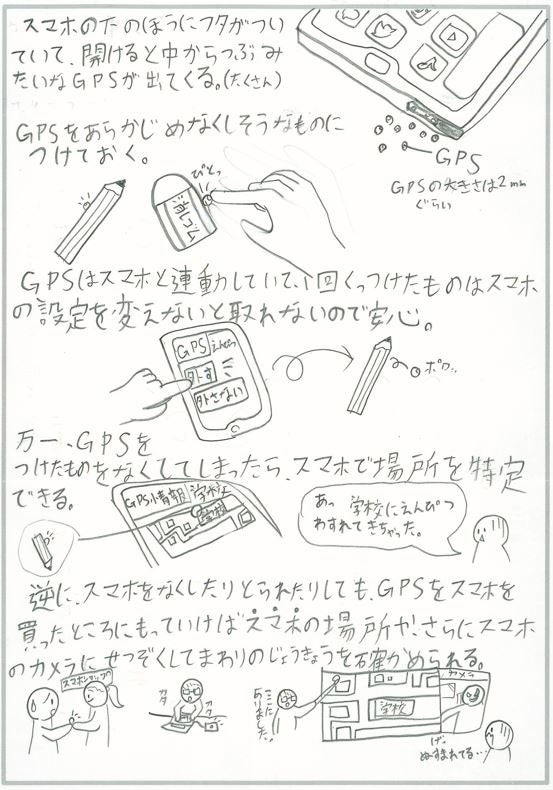 スマホの下のほうにフタがつい
ていて、開けると中からつぶみ
たいなGPSが出てくる。(たくさん)
GPS
GPSの大きさは2mm
ぐらい
GPSをあらかじめなくしそうなものに
つけておく。
ぴとっ
消しゴム
GPSはスマホと連動していて、1回くっつけたものはスマホ
の設定を変えないと取れないので安心。
GPSえんぴつ
外す
外さない
ポロッ
万一、GPSを
つけたものをなくしてしまったら、スマホで場所を特定
できる。
GPS情報 学校
学校
あっ 学校にえんぴつ
わすれてきちゃった。
逆に、スマホをなくしたりとられたりしても、GPSをスマホを
買ったところにもっていけばスマホの場所や、さらにスマホ
のカメラにせつぞくしてまわりのじょうきょうを確かめられる。
スマホショップ
カタ
カタ
ここに
ありました!
学校
カメラ
げっ
ぬすまれてる…